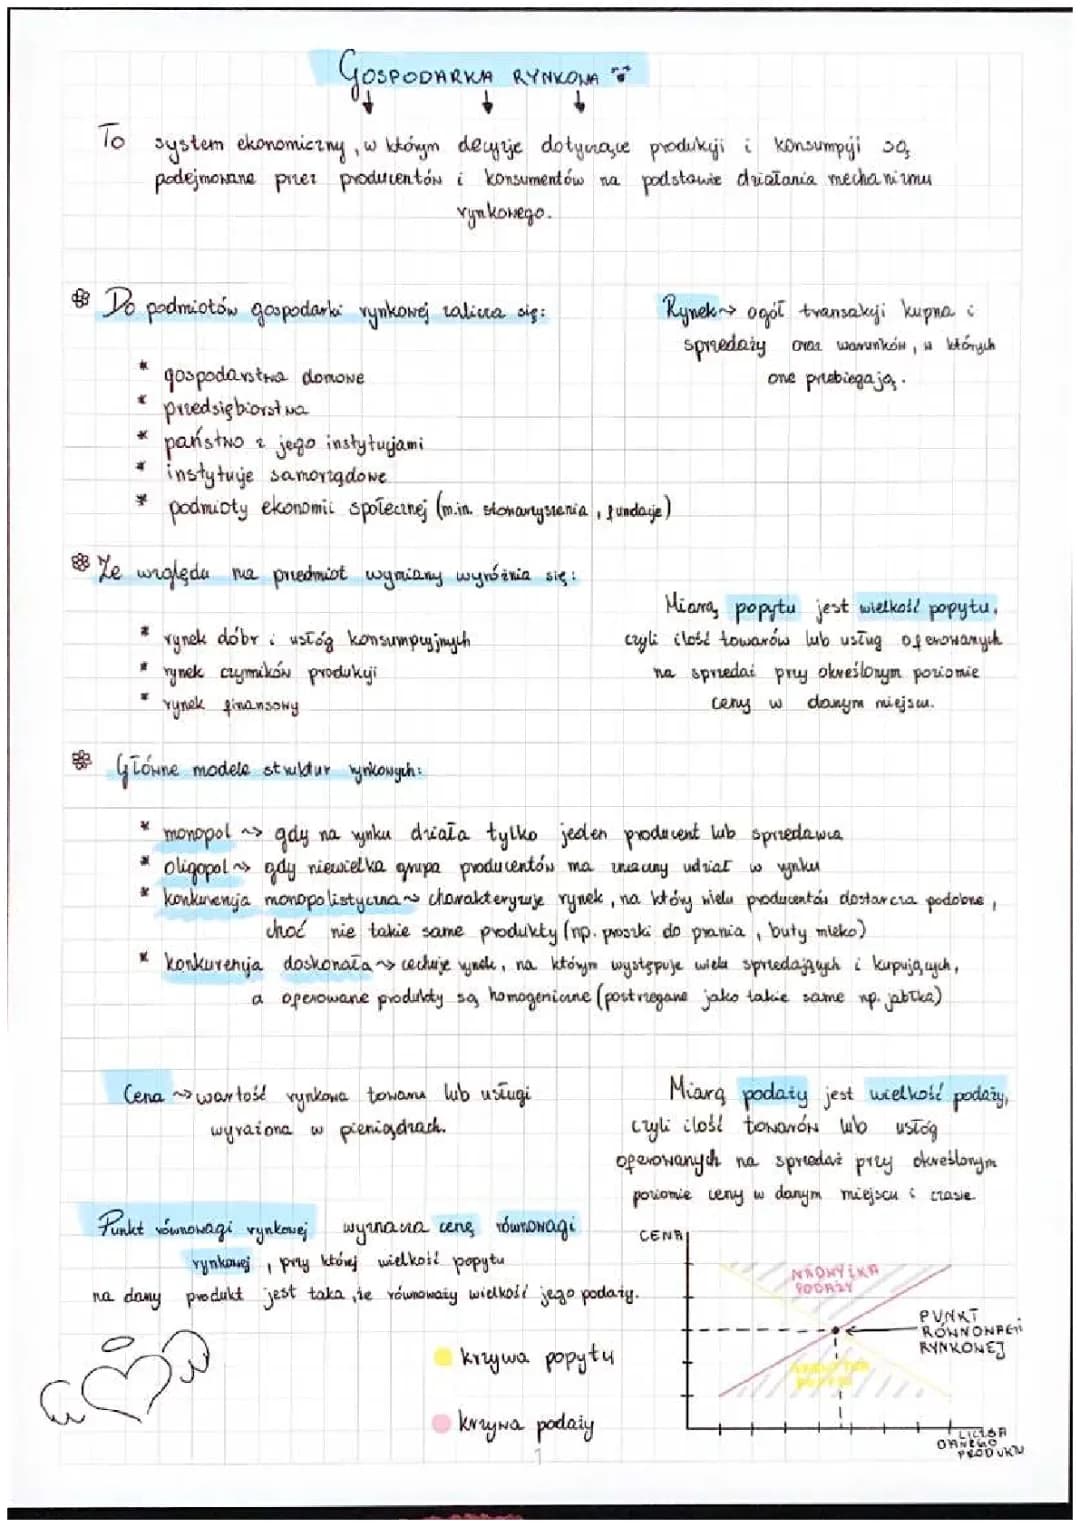 GOSPODARKA RYNKOWA
To system ekonomiczny, w którym decyzje dotyczące produkcji i konsumpcji są
podejmowane przez producentów i konsumentów na podstawie działania mechanizmu
rynkowego.
Do podmiotów gospodarki rynkowej zalicza się:
* gospodarstwa domowe
* przedsiębiorstwa
* państwo z jego instytucjami
* instytucje samorządowe
* podmioty ekonomii społecznej (m.in. stowarzyszenia, fundacje)
Rynek ~> ogół transakcji kupna i
sprzedaży oraz warunków, w których
one przebiegają.
Ze względu na przedmiot wymiany wyróżnia się:
* rynek dóbr i usłóg konsumpcyjnych
* rynek czynników produkcji
* rynek finansowy
Miarą popytu jest wielkość popytu,
czyli ilość towarów lub usług oferowanych
na sprzedaż przy określonym poziomie
ceny w danym miejscu.
Główne modele struktur rynkowych:
* monopol ~> gdy na rynku działa tylko jeden producent lub sprzedawca
* oligopol ~> gdy niewielka grupa producentów ma znaczny udział w rynku
* konkurencja monopolistyczna ~> charakteryzuje rynek, na który wielu producentów dostarcza podobne,
choć nie takie same produkty (np. proszki do prania, buty mleko)
* konkurencja doskonała ~> cechuje rynek, na którym występuje wielu sprzedających i kupujących,
a oferowane produkty są homogeniczne (postrzegane jako takie same np. jabłka)
Cena ~> wartość rynkowa towaru lub usługi
wyrażona w pieniądzach.
Miarą podaży jest wielkość podaży,
czyli ilość towarów lub usłóg
oferowanych na sprzedaż przy określonym
poziomie ceny w danym miejscu i czasie
Punkt równowagi rynkowej wyznacza cenę równowagi
rynkowej, przy której wielkość popytu
na dany produkt jest taka, że równoważy wielkość jego podaży.
krzywa popytu
krzywa podaży
CENA
NADWYŻKA
PODAŻY
PUNKT
RÓWNOWAGI
RYNKOWEJ
LICZBA
DANEGO
PRODUKTU